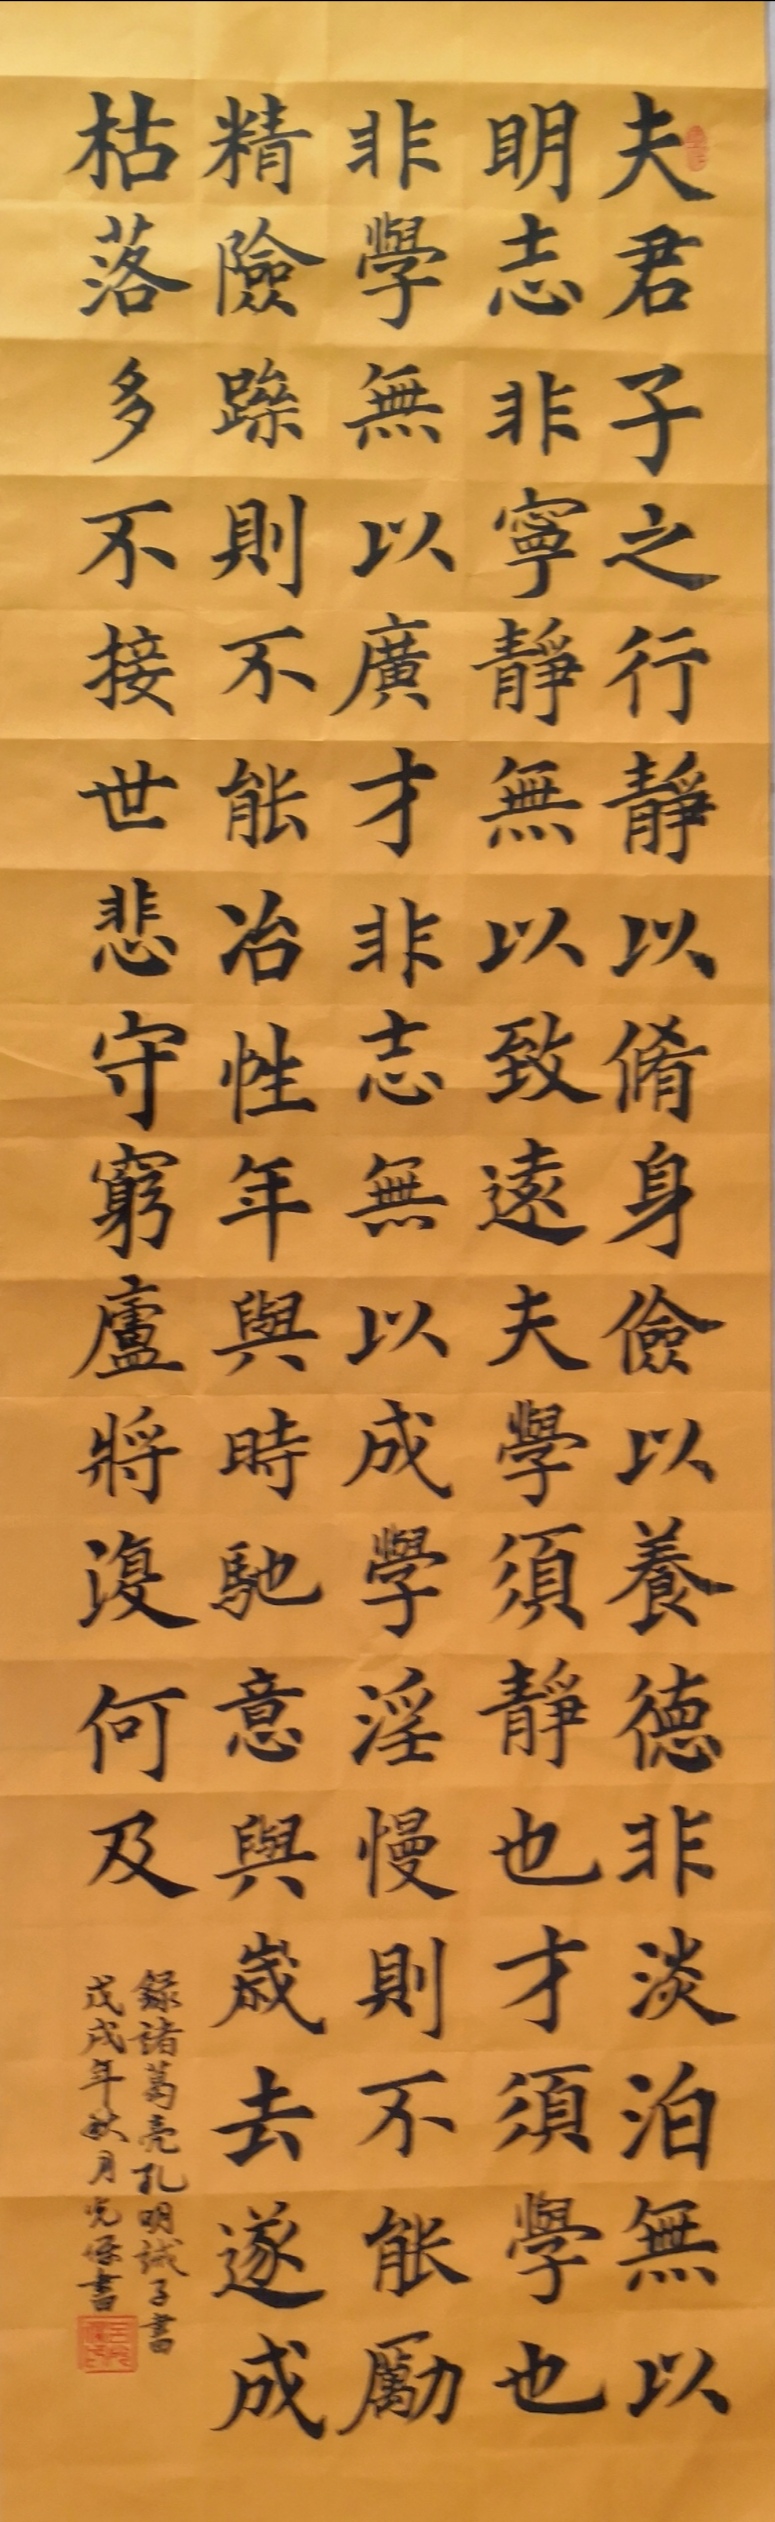 夫君子之行靜以脩身儉以養德非淡泊無以
明志非寧靜無以致遠夫學須靜也才須學也
非學無以廣才非志無以成學淫慢則不能勵
精險躁則不能冶性年與時馳意與歲去遂成
枯落多不接世悲守窮廬將復何及
錄諸葛亮孔明誡子書
戊戌年秋月光保書